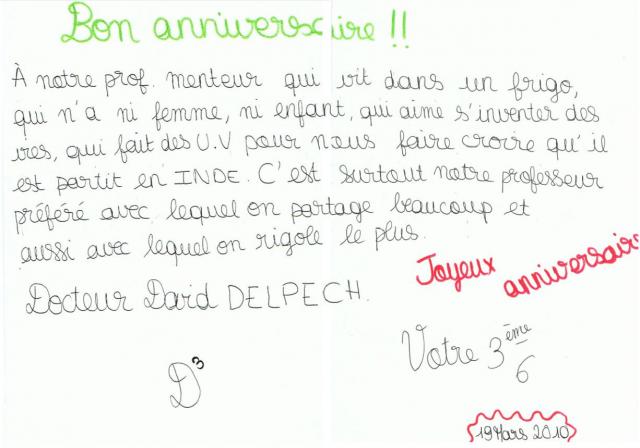 Bon anniversaire !!
À notre prof. menteur qui vit dans un frigo,
qui n'a ni femme, ni enfant, qui aime s'inventer des
ires, qui fait des U.V pour nous faire croire qu'il
est partit en INDE. C'est surtout notre professeur
préféré avec lequel on partage beaucoup et
aussi avec lequel on rigole le plus.
Joyeux anniversaire
Docteur David DELPECH.
Votre 3ème 6
D3
19 Mars 2010